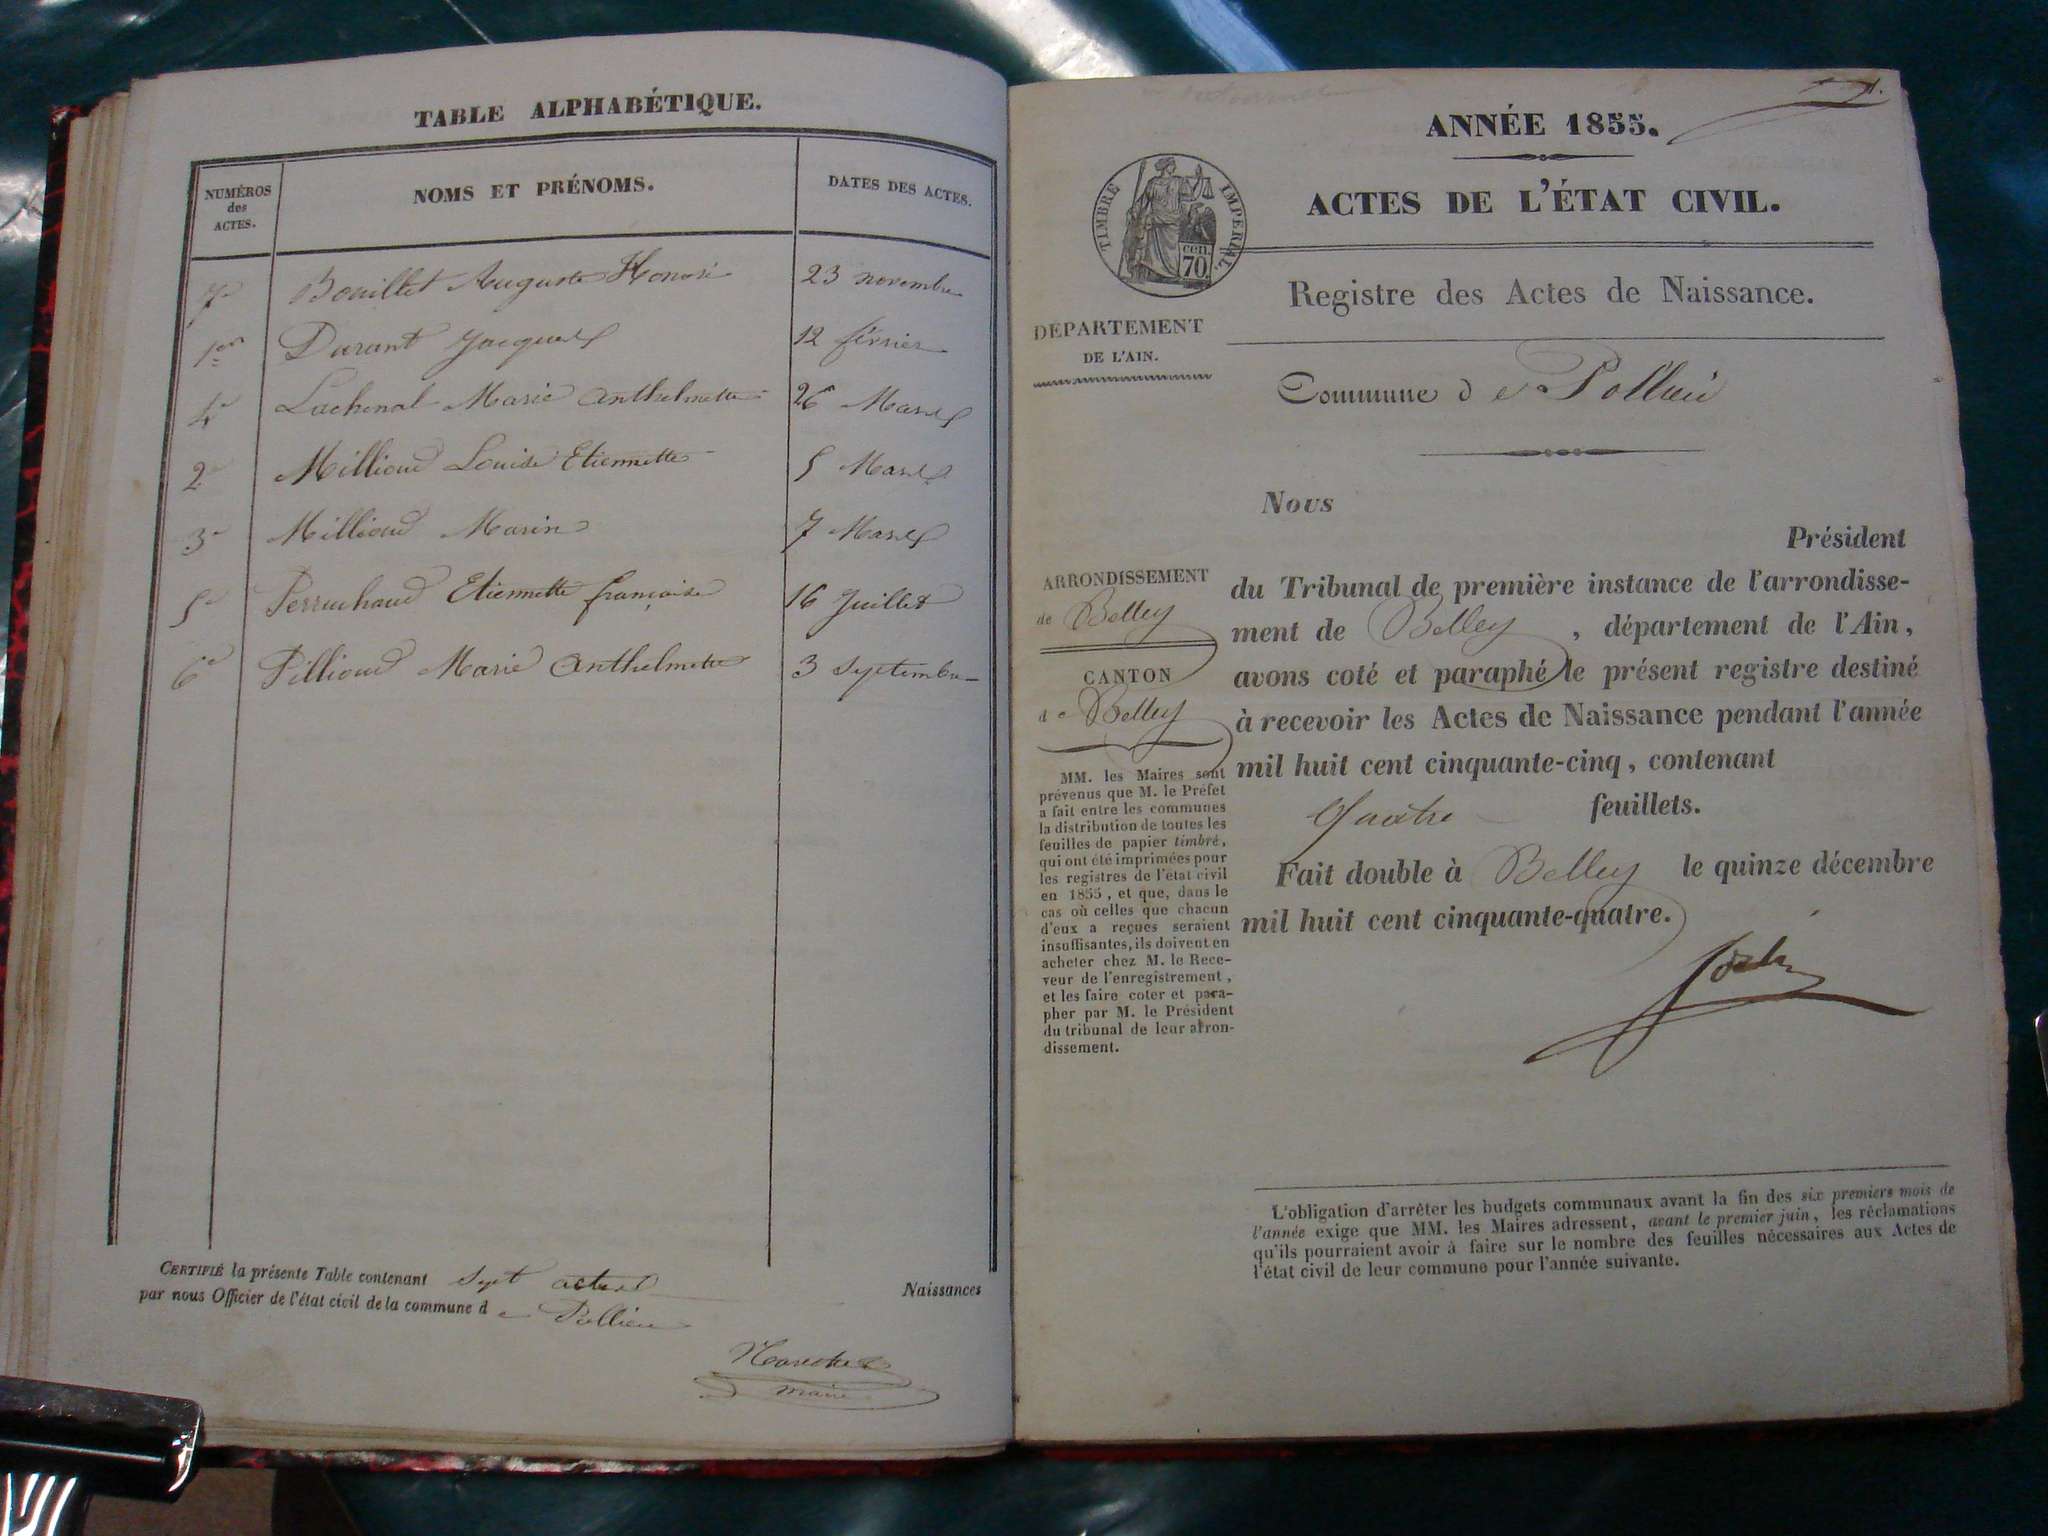 TABLE ALPHABÉTIQUE.
NUMÉROS des ACTES. NOMS ET PRÉNOMS. DATES DES ACTES.
7e Bouillet Auguste Honoré 23 novembre
1er Durant Jacques 12 février
4e Lachenal Marie Anthelmette 26 Mars
2e Millioud Louise Etiennette 5 Mars
3e Millioud Marin 7 Mars
5e Perruchaud Etiennette françoise 16 Juillet
6e Pillioud Marie Anthelmette 3 Septembre
CERTIFIÉ la présente Table contenant sept actes Naissances
par nous Officier de l'état civil de la commune de Pollieu
maire
1.
ANNÉE 1855.
ACTES DE L'ÉTAT CIVIL.
TIMBRE IMPÉRIAL.
cen.
70
Registre des Actes de Naissance.
DÉPARTEMENT
DE L'AIN.
Commune de Pollieu
ARRONDISSEMENT
de Belley
CANTON
de Belley
MM. les Maires sont
prévenus que M. le Préfet
a fait entre les communes
la distribution de toutes les
feuilles de papier timbré,
qui ont été imprimées pour
les registres de l'état civil
en 1855, et que, dans le
cas où celles que chacun
d'eux a reçues seraient
insuffisantes, ils doivent en
acheter chez M. le Rece-
veur de l'enregistrement,
et les faire coter et para-
pher par M. le Président
du tribunal de leur arron-
dissement.
Nous
Président
du Tribunal de première instance de l'arrondisse-
ment de Belley, département de l'Ain,
avons coté et paraphé le présent registre destiné
à recevoir les Actes de Naissance pendant l'année
mil huit cent cinquante-cinq, contenant
Quatre feuillets.
Fait double à Belley le quinze décembre
mil huit cent cinquante-quatre.
L'obligation d'arrêter les budgets communaux avant la fin des six premiers mois de
l'année exige que MM. les Maires adressent, avant le premier juin, les réclamations
qu'ils pourraient avoir à faire sur le nombre des feuilles nécessaires aux Actes de
l'état civil de leur commune pour l'année suivante.